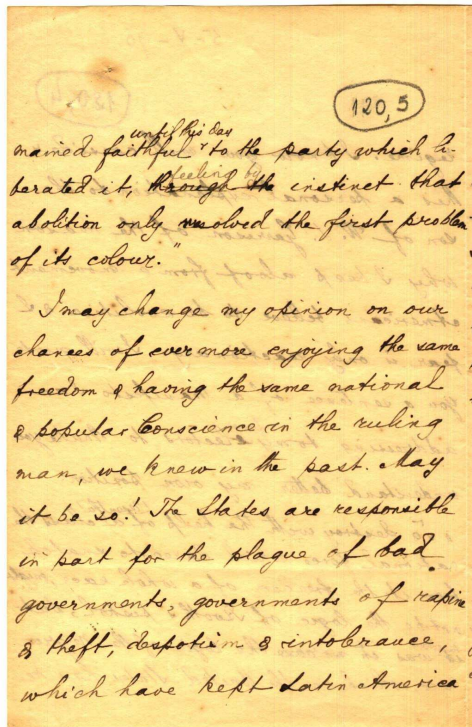 120,5
until this day
mained faithful to the party which li-
feeling by
berated it, through the instinct that
abolition only resolved the first problem
of its colour."
I may change my opinion on our
chances of ever more enjoying the same
freedom & having the same national
& popular Conscience in the ruling
man, we knew in the past. May
it be so! The States are responsible
in part for the plague of bad
governments, governments of rapine
& theft, despotism & intolerance,
which have kept Latin America